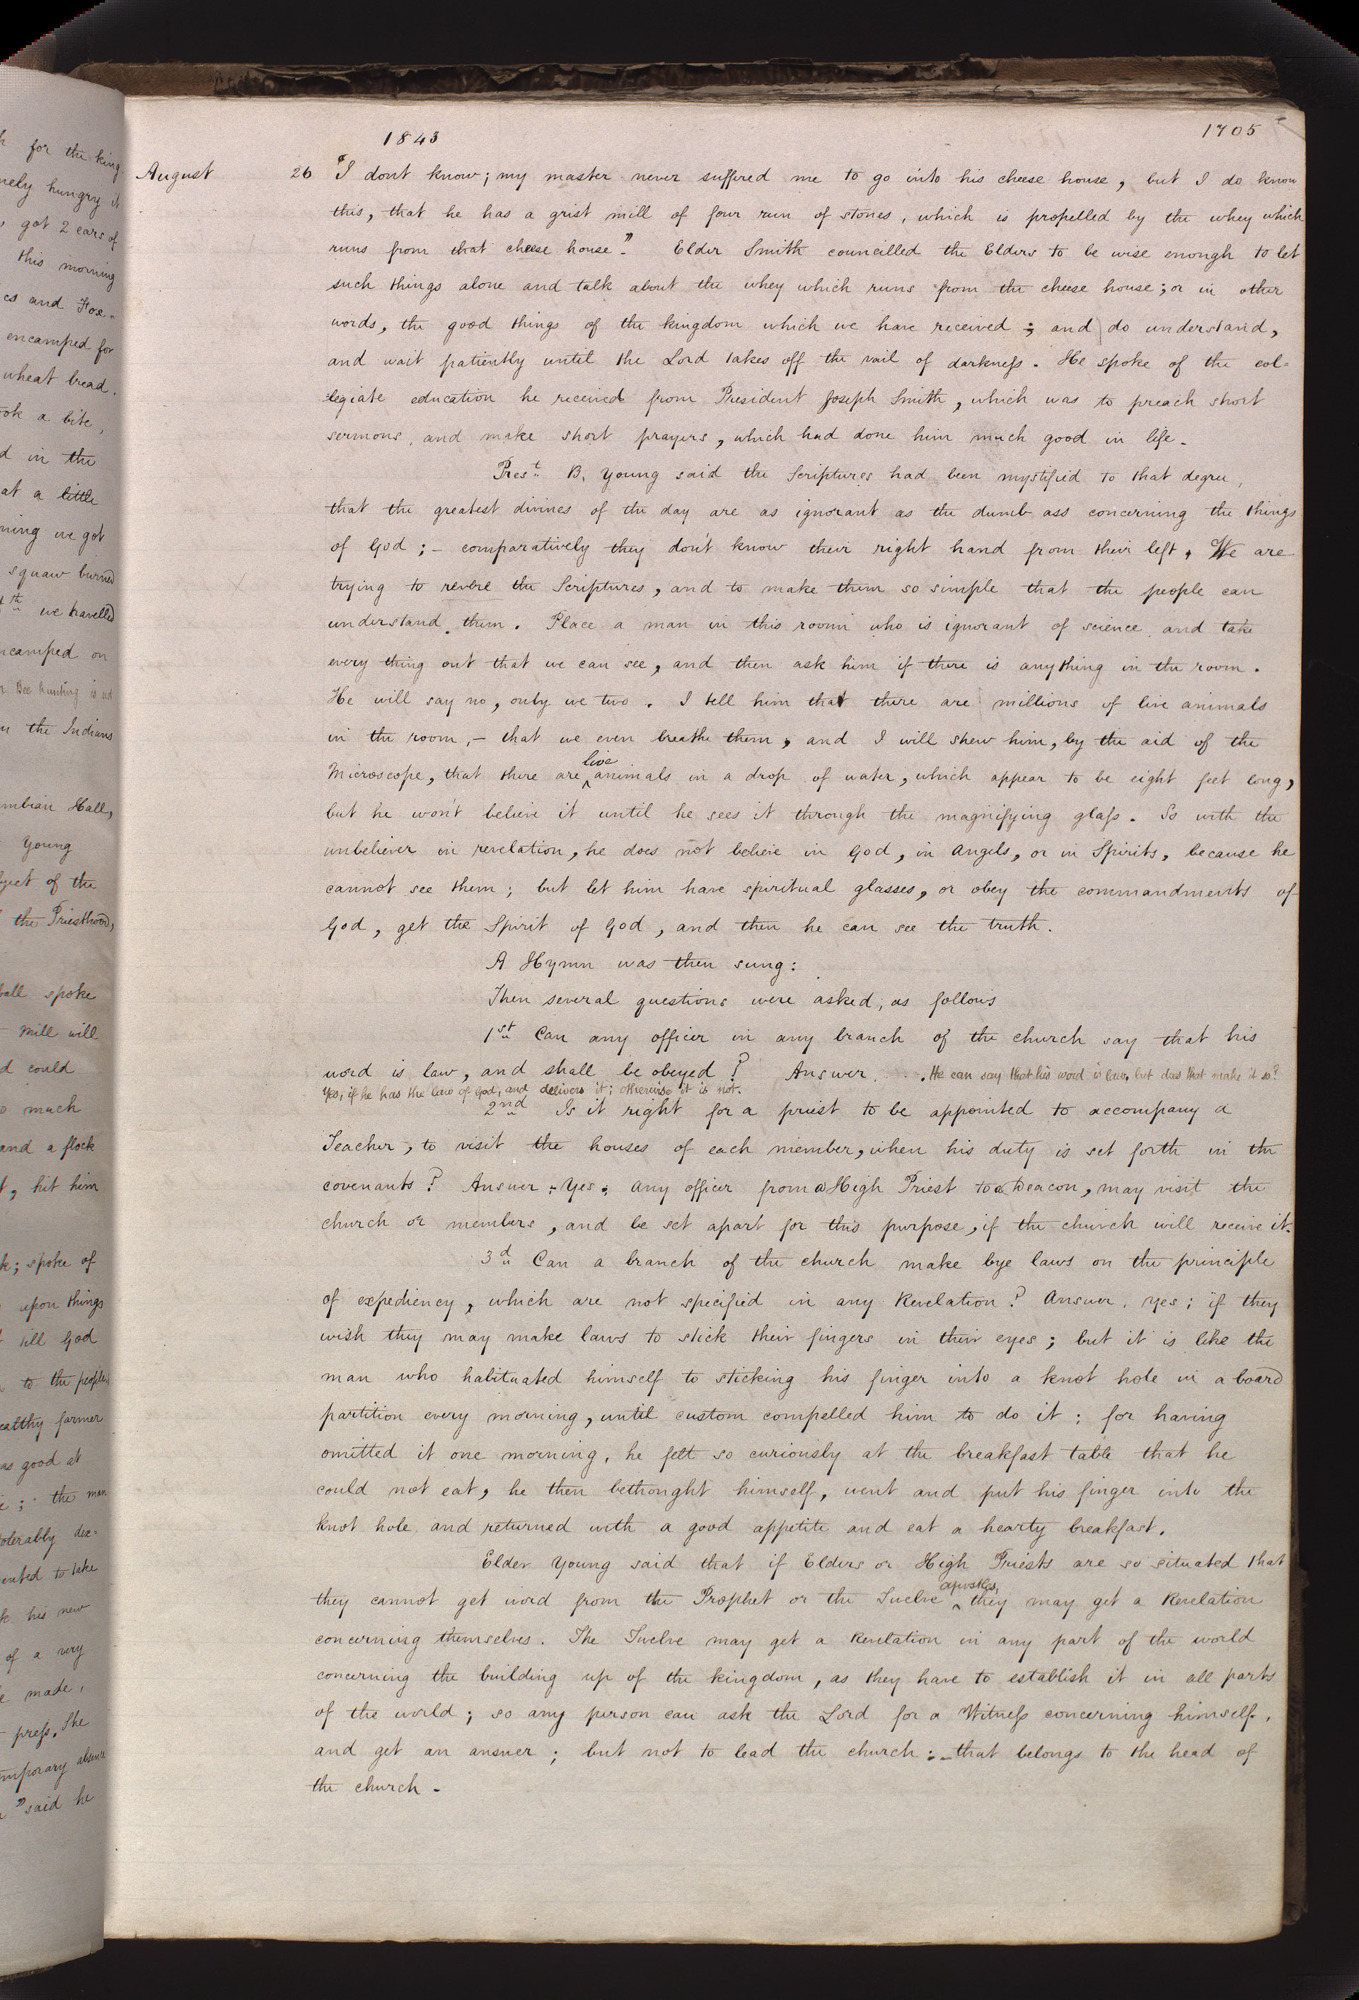 h for the king
nely hungry it
got 2 ears of
this morning
es and Fox-
encamped for
wheat bread.
ook a bite,
d in the
at a little
ning we got
squaw burned
th we travelled
ncamped on
r Bee hunting is not
m the Indians
mbian Hall,
Young
bject of the
the Priesthood,
ball spoke
mill will
d could
o much
and a flock
t, hit him
k; spoke of
upon things
till God
to the people;
ealthy farmer
as good at
e; the man
olerably dec=
ented to take
k his new
of a very
e made,
press. She
mporary absence
" said he
1843 1705
August 26 "I dont know; my master never suffered me to go into his cheese house, but I do know
this, that he has a grist mill of four run of stones, which is propelled by the whey which
runs from that cheese house". Elder Smith councilled the Elders to be wise enough to let
such things alone and talk about the whey which runs from the cheese house; or in other
words, the good things of the kingdom which we have received; and do understand,
and wait patiently until the Lord takes off the vail of darkness. He spoke of the col-
legiate education he received from President Joseph Smith, which was to preach short
sermons, and make short prayers, which had done him much good in life.
Prest. B. Young said the Scriptures had been mystified to that degree,
that the greatest divines of the day are as ignorant as the dumb ass concerning the things
of God; - comparatively they don't know their right hand from their left. We are
trying to revere the Scriptures, and to make them so simple that the people can
understand them. Place a man in this room who is ignorant of science, and take
every thing out that we can see, and then ask him if there is anything in the room.
He will say no, only we two. I tell him that there are millions of live animals
in the room, - that we even breathe them, and I will shew him, by the aid of the
Microscope, that there are live animals in a drop of water, which appear to be eight feet long,
but he won't believe it until he sees it through the magnifying glass. So with the
unbeliever in revelation, he does not believe in God, in Angels, or in Spirits, because he
cannot see them; but let him have spiritual glasses, or obey the commandments of
God, get the Spirit of God, and then he can see the truth.
A Hymn was then sung:
Then several questions were asked, as follows
1st Can any officer in any branch of the church say that his
word is law, and shall be obeyed? Answer. He can say that his word is law, but does that make it so?
Yes, if he has the law of God, and delivers it; otherwise it is not.
2nd Is it right for a priest to be appointed to accompany a
Teacher, to visit the houses of each member, when his duty is set forth in the
covenants? Answer: Yes, any officer from a High Priest to a Deacon, may visit the
church or members, and be set apart for this purpose, if the church will receive it.
3d Can a branch of the church make bye laws on the principle
of expediency, which are not specified in any Revelation? Answer, yes; if they
wish they may make laws to stick their fingers in their eyes; but it is like the
man who habituated himself to sticking his finger into a knot hole in a board
partition every morning, until custom compelled him to do it; for having
omitted it one morning, he felt so curiously at the breakfast table that he
could not eat, he then bethought himself, went and put his finger into the
knot hole and returned with a good appetite and eat a hearty breakfast.
Elder Young said that if Elders or High Priests are so situated that
they cannot get word from the Prophet or the Twelve apostles, they may get a Revelation
concerning themselves. The Twelve may get a Revelation in any part of the world
concerning the building up of the kingdom, as they have to establish it in all parts
of the world; so any person can ask the Lord for a Witness concerning himself,
and get an answer; but not to lead the church: - that belongs to the head of
the church.-